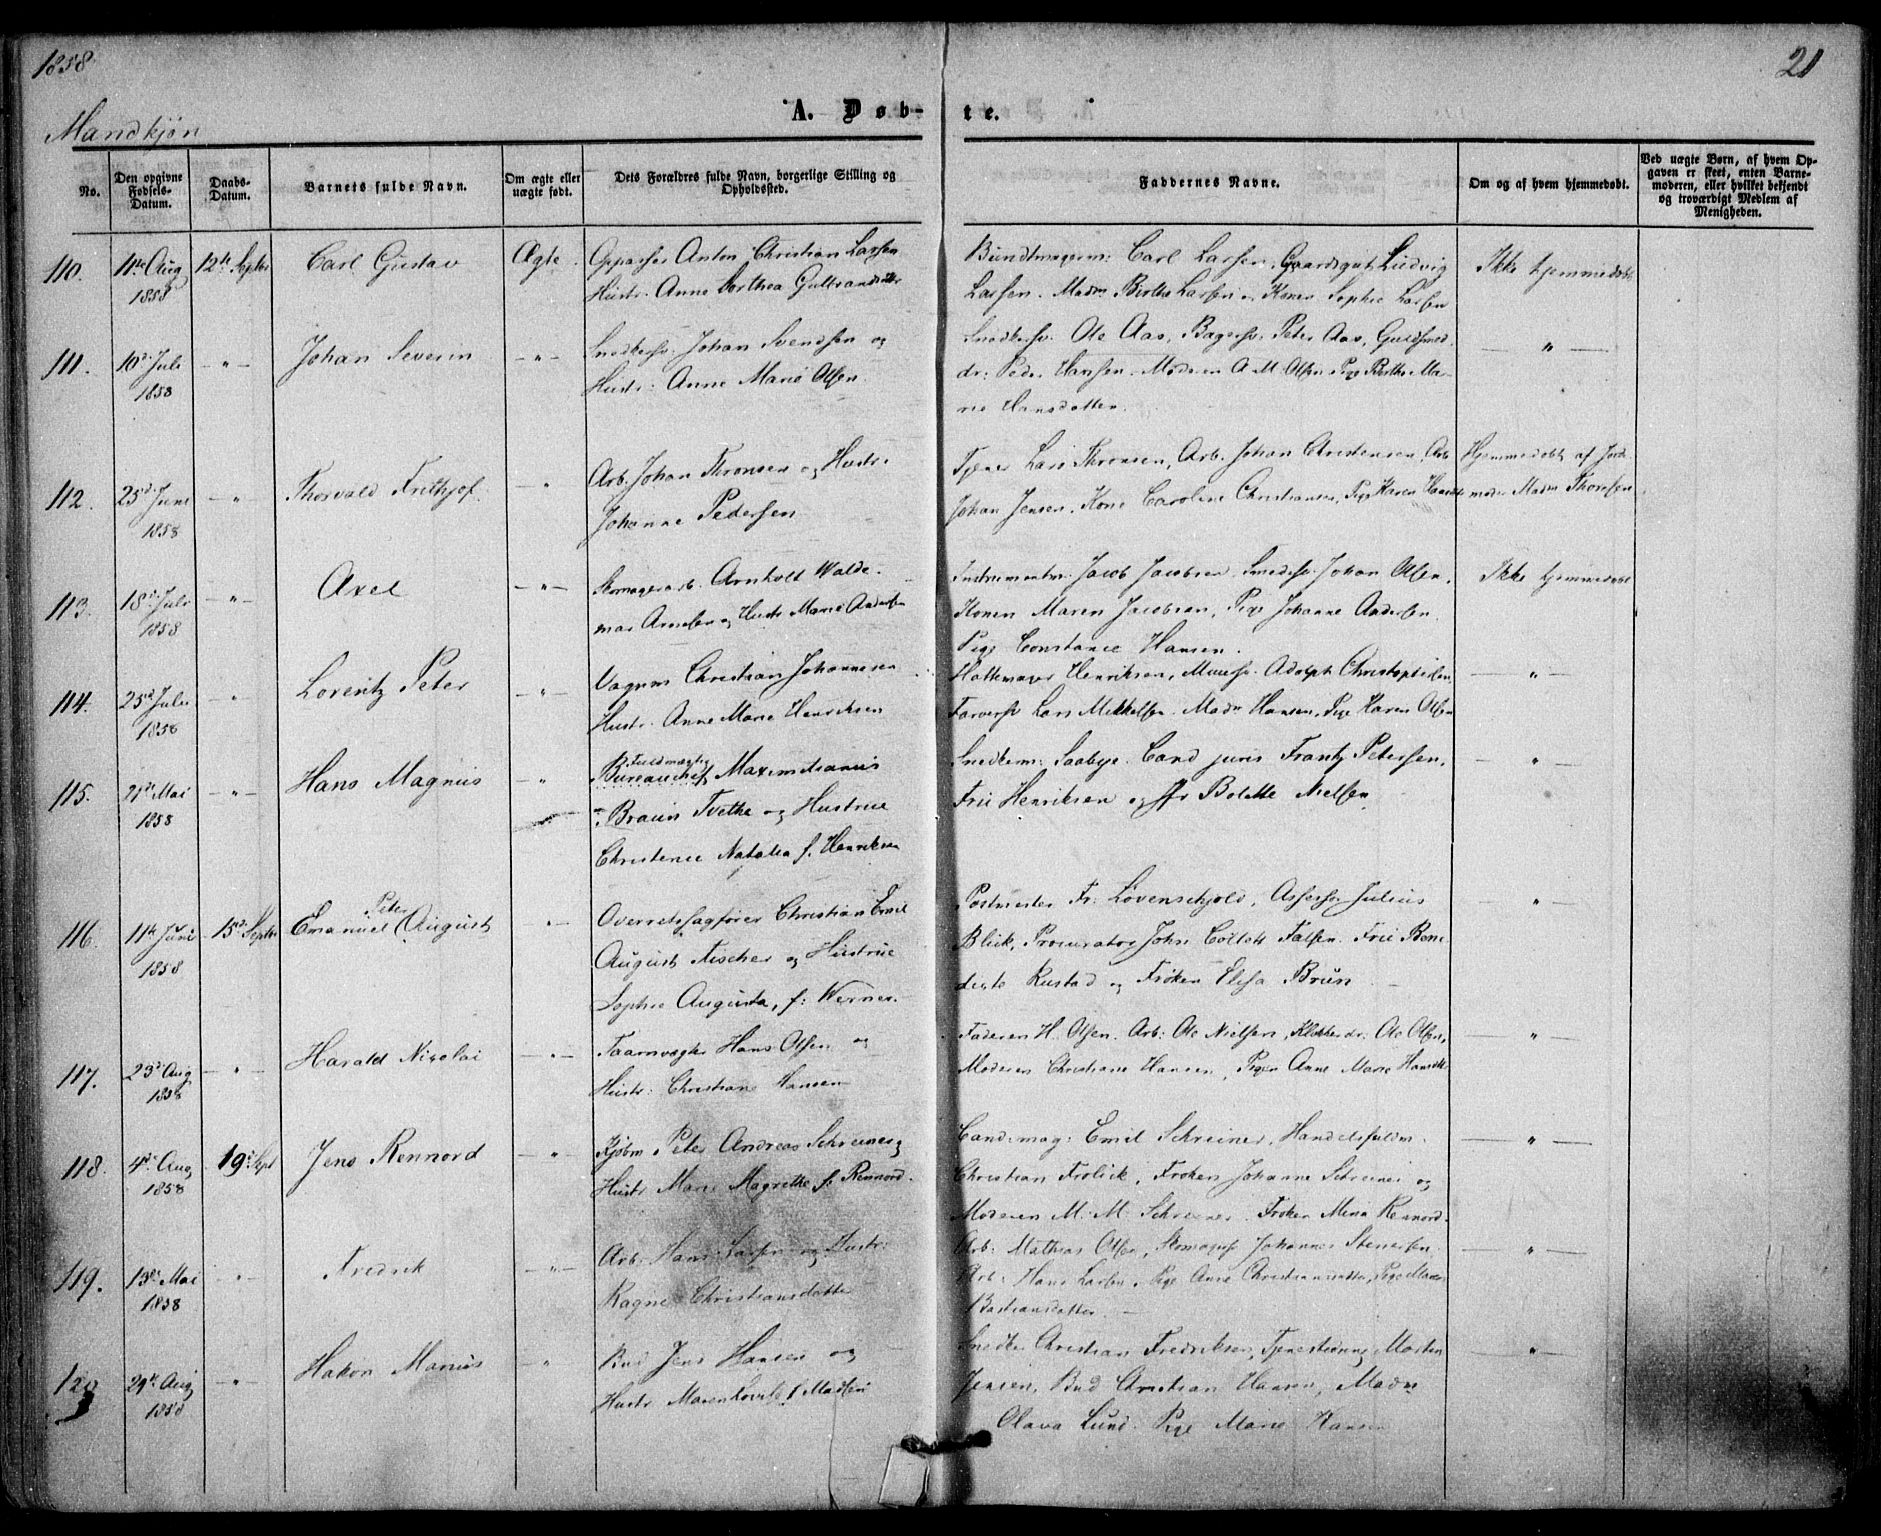 1858
21
A. Døb-te.
Mandkjøn
No.
Den opgivne Fødsels-Datum.
Daabs-Datum.
Barnets fulde Navn.
Om ægte eller uægte født.
Dets Forældres fulde Navn, borgerlige Stilling og Opholdssted.
Faddernes Navne.
Om og af hvem hjemmedøbt.
Ved uægte Børn, af hvem Op-
gaven er skeet, enten Barne-
moderen, eller hvilket bekjendt
og troværdigt Medlem af
Menigheden.
110. 11te Aug 1858 12te Septbr Carl Gustav Ægte
Anton Christian Larsen
Hustr. Anne Dorthea Gulbrandsdtr
Bundtmagerm: Carl Larsen, Gaardsgut Ludvig
Larsen. Madm Berthe Larsen, Konen Sophie Larsen
Ikke hjemmedøbt
111. 10de Juli 1858 -"- Johan Severin -"-
Snedkersv. Johan Svendsen og
Hustr: Anne Marie Olsen
Snedkersv. Ole Aas, Bagersv. Peter Aas, Guldsmed
dr: Peder Hansen. Moderen A. M. Olsen, Pige Berthe Ma-
rie Hansdatter.
-"-
112. 25de Juni 1858 -"- Thorvald Frithjof. -"-
Arb. Johan Thronsen og Hustr.
Johanne Pedersen
Tjener Lars Thronsen, Arb. Johan Christensen, Arb
Johan Jensen. Kone Caroline Christiansen, Pige Karen Hansdt
Hjemmedøbt af Jord
moder Madm Thoresen
113. 18de Juli 1858 -"- Axel -"-
Skomagerarb. Arnholt Walde-
mar Arnesen og Hustr Marie Andersen
Instrumentm. Jacob Jacobsen, Smedesv. Johan Olsen,
Konen Maren Jacobsen, Pige Johanne Andersen.
Pige Constance Hansen.
Ikke hjemmedøbt
114. 25de Juli 1858 " Lorentz Peter -"-
Vognm Christian Johannesen
Hustr. Anne Marie Henriksen
Hattemager Henriksen, Muursv. Adolph Christophersen,
Farversv Lars Mikkelsen. Madm Hansen, Pige Karen Olsen
-"-
115. 21de Mai 1858 -"- Hans Magnus -"-
Fuldmægtig
Bureauchef Maximilianus
Braun Tvethe og Hustrue
Christence Natalia f. Henriksen
Snedkerm: Saabye. Cand juris Frantz Petersen,
Frue Henriksen og Jfr Bolette Nielsen
-"-
116. 11te Juni 1858 15de Septbr Emanuel Peter August -"-
Overretssagfører Christian Emil
August Fischer og Hustrue
Sophie Augusta, f: Werner.
Postmester Fr. Løvenschjold, Assessor Julius
Blick, Procurator John Collett Falsen. Frue Bene
dicte Rustad og Frøken Elisa Brun
-"-
117. 23de Aug 1858 " Harald Nicolai -"-
Taarnvægter Hans Olsen og
Hustr: Christiane Hansen
Faderen H. Olsen. Arb: Ole Nielsen, Klokker dr. Ole Olsen,
Moderen Christiane Hansen, Pigen Anne Marie Hansdtr
-"-
118. 4de Aug 1858 19de Sept Jens Rennord -"-
Kjøbm Peter Andreas Schreiner og
Hustr Maren Magrethe f: Rennord.
Cand. mag: Emil Schreiner, Handelsfuldm:
Christian Frølich, Frøken Johanne Schreiner og
Moderen M. M. Schreiner. Frøken Mina Rennord.
-"-
119. 13de Mai 1858 " Fredrik -"-
Arb. Hans Larsen og Hustr:
Ragne Christiansdatter
Arb: Mathias Olsen, Skomagersv Johannes Stenersen
Arb: Hans Larsen, Pige Anne Christiansdatter, Pige Maren
Bastiansdatter.
-"-
120 29de Aug 1858 -"- Hakon Marius -"-
Bud Jens Hansen og
Hustr Maren Lovise f Madsen
Snedker Christian Fredriksen, Tjenestdreng Morten
Jensen, Bud Christian Hansen, Madm
Olava Lund. Pige Marie Hansen
-"-